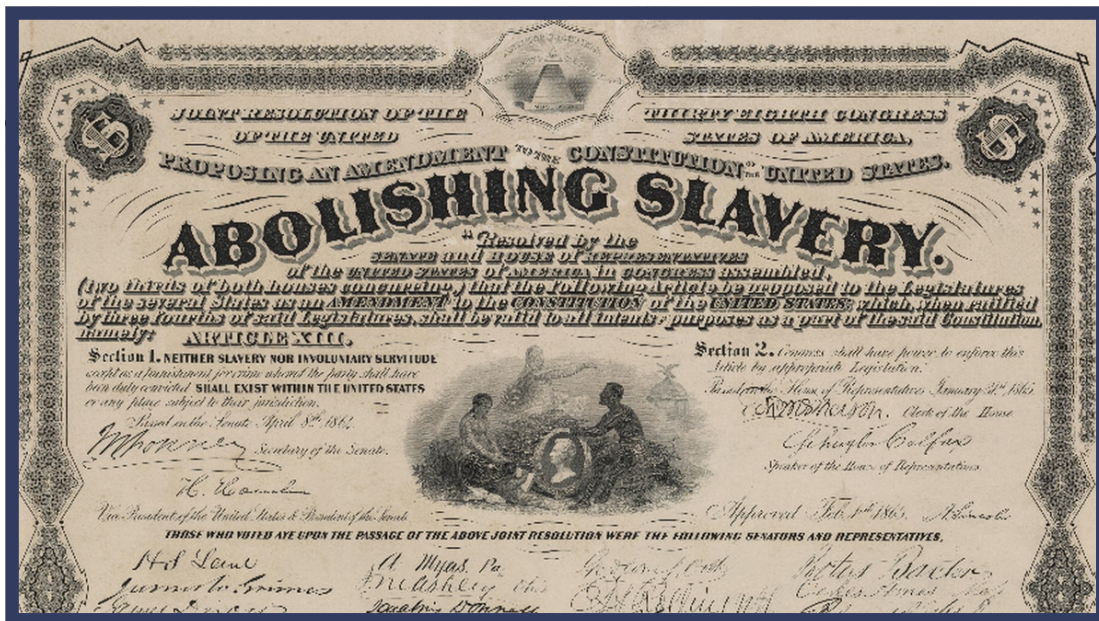 JOINT RESOLUTION OF THE THIRTY EIGHTH CONGRESS
OF THE UNITED STATES OF AMERICA,
PROPOSING AN AMENDMENT TO THE CONSTITUTION OF THE UNITED STATES.
ABOLISHING SLAVERY.
"Resolved by the
SENATE and HOUSE OF REPRESENTATIVES
of the UNITED STATES of AMERICA in CONGRESS assembled,
(two thirds of both houses concurring,) that the following Article be proposed to the Legislatures
of the several States as an AMENDMENT to the CONSTITUTION of the UNITED STATES; which, when ratified
by three fourths of said Legislatures, shall be valid to all intents & purposes as a part of the said Constitution,
namely: ARTICLE XIII.
Section 1. NEITHER SLAVERY NOR INVOLUNTARY SERVITUDE
except as a punishment for crime whereof the party shall have
been duly convicted SHALL EXIST WITHIN THE UNITED STATES
or any place subject to their jurisdiction.
Passed in the Senate April 8th 1864.
Secretary of the Senate.
H. Hamlin
Vice President of the United States & President of the Senate
Section 2. Congress shall have power to enforce this
Article by appropriate Legislation.
House of Representatives January 31st 1865
Clerk of the House
Schuyler Colfax
Speaker of the House of Representatives.
Approved Feb. 1st 1865. A. Lincoln
THOSE WHO VOTED AYE UPON THE PASSAGE OF THE ABOVE JOINT RESOLUTION WERE THE FOLLOWING SENATORS AND REPRESENTATIVES.
H S Lane
James W. Grimes